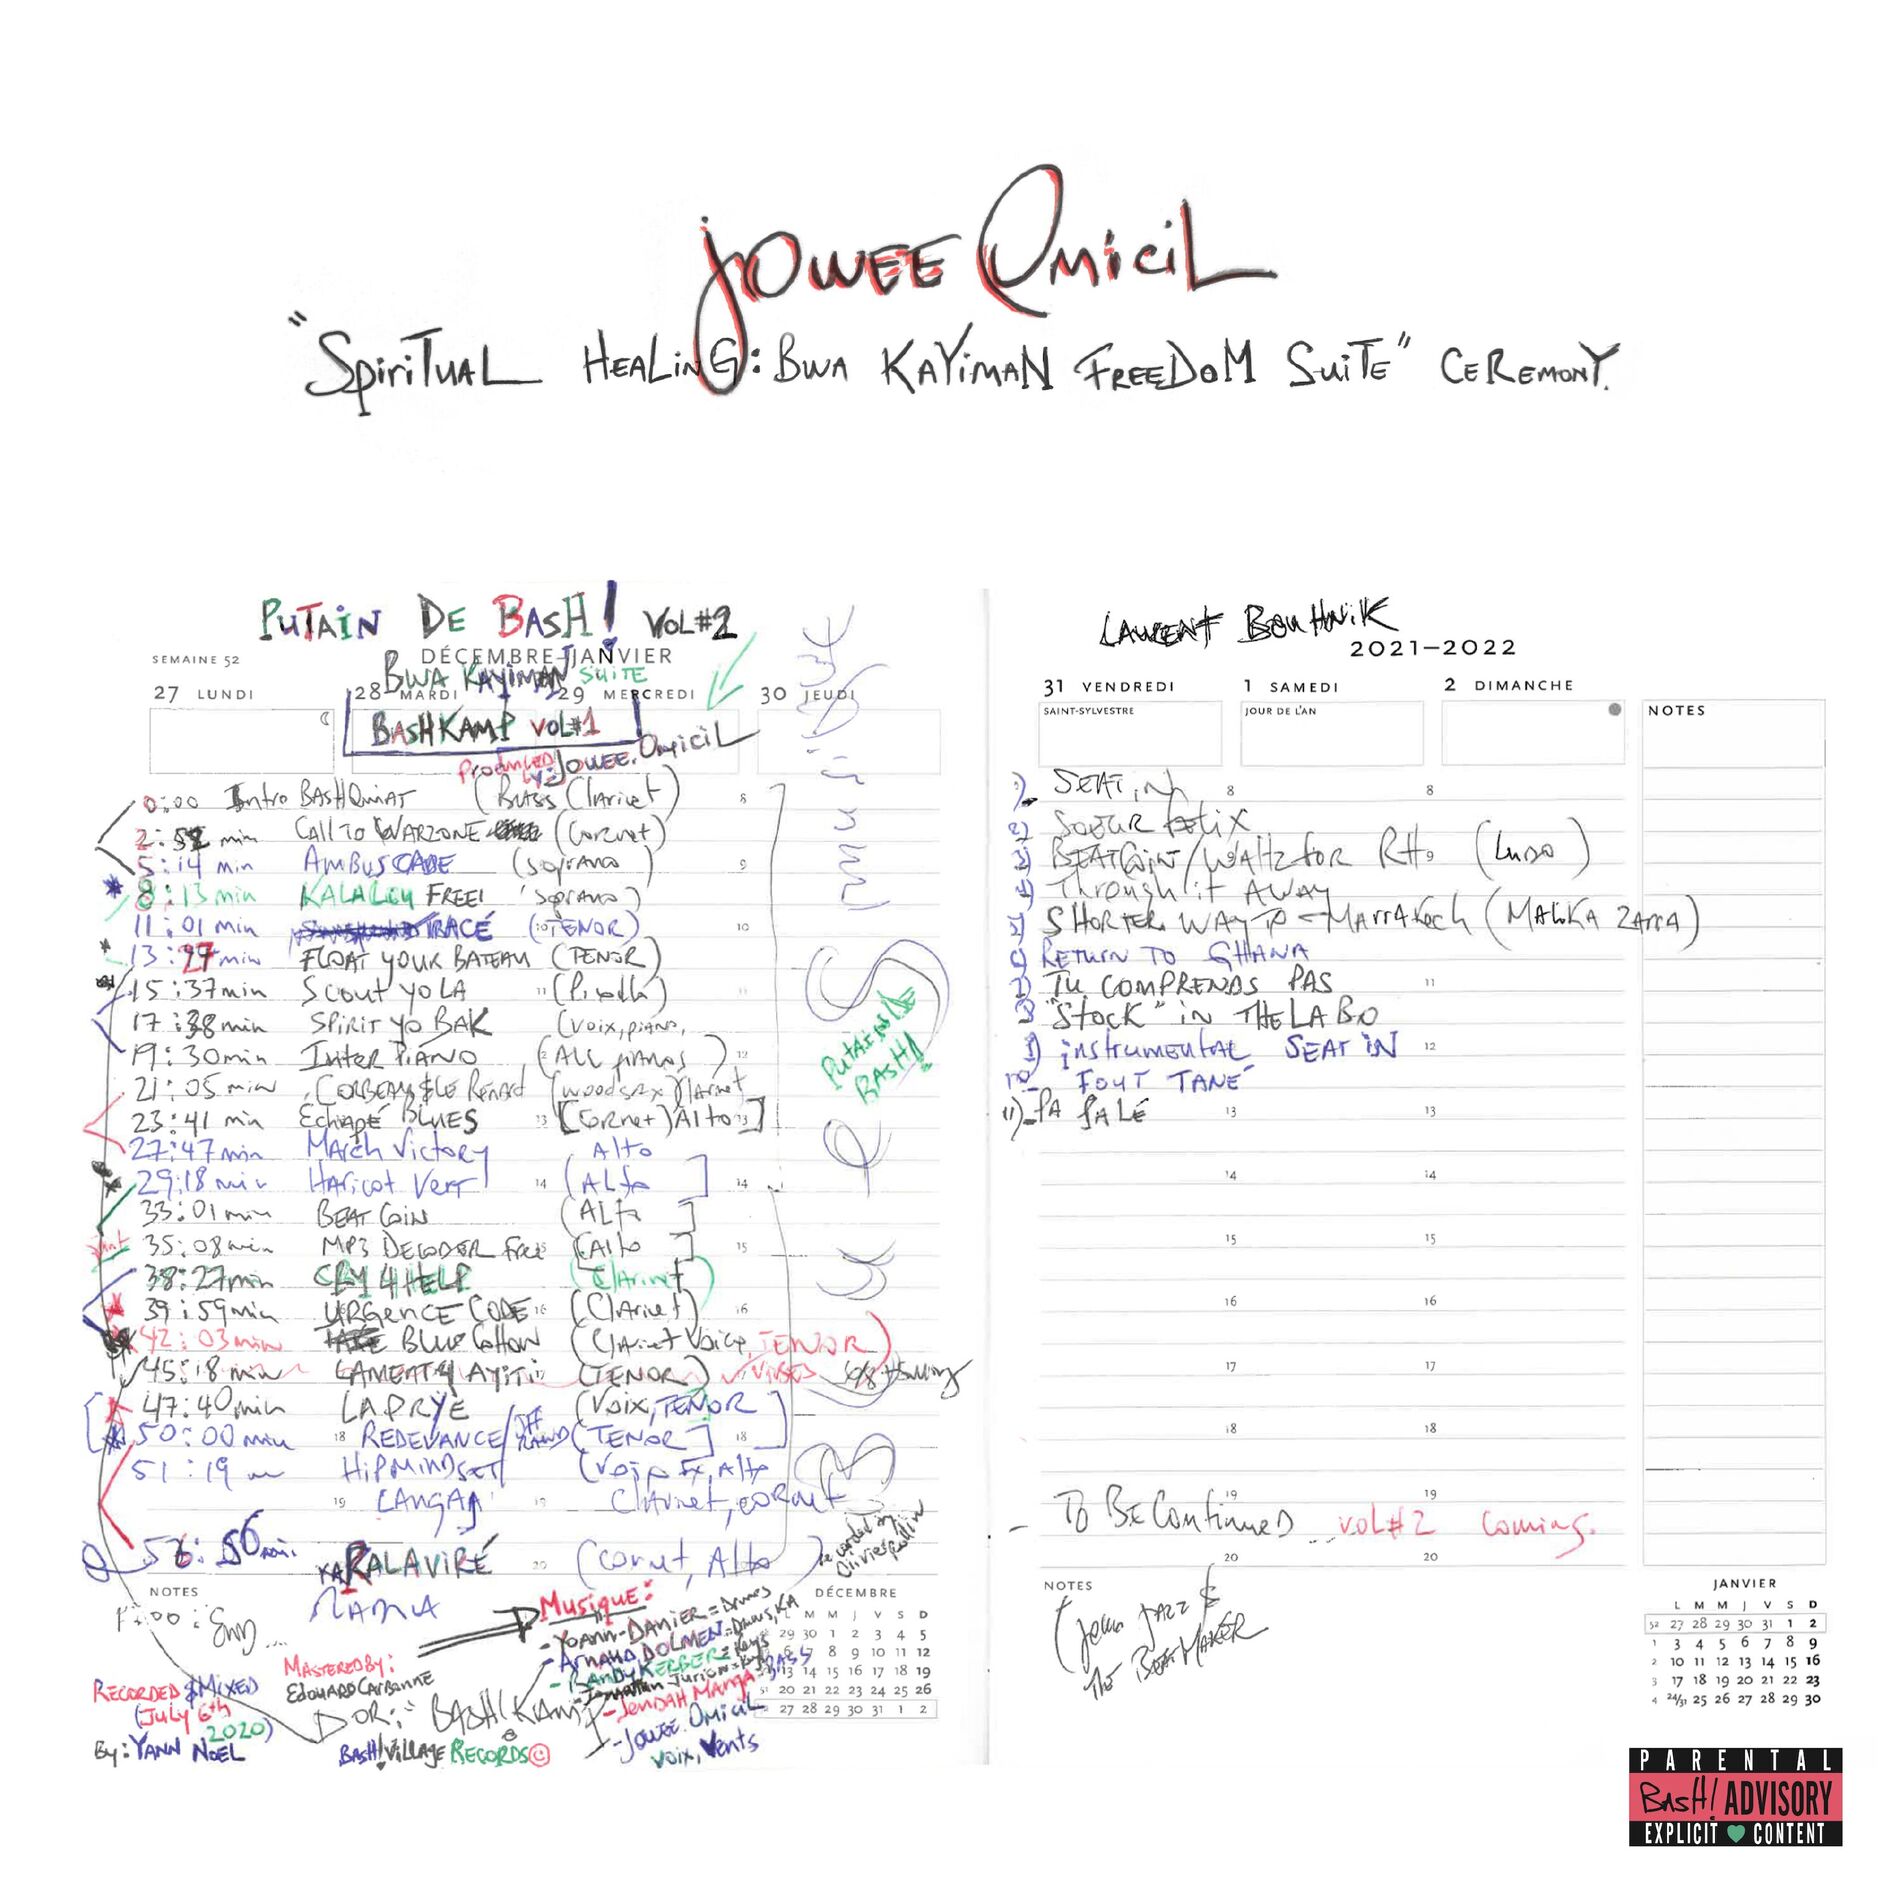 JOWEE OMiCiL
"SPiRiTUAL HEALiNG: BWA KAYiMAN FREEDOM SUiTE" CEREMONY.
PUTAIN DE BASH! VOL#2
SEMAINE 52
DÉCEMBRE–JANVIER
BWA KAYIMAN SUITE
27 LUNDI 28 MARDI 29 MERCREDI 30 JEUDI
BASHKAMP VOL#1
PRODUCED by: JOWEE OMiCiL
0:00 Intro BASH (Bass Clarinet) 8
2:52 min CALL TO WARZONE (Cornet)
5:14 min AMBUSCADE (soprano) 9
8:13 min KALALOU FREE! (soprano)
11:01 min TRACÉ (TENOR) 10
13:27 min FLOAT YOUR BATEAU (TENOR)
15:37 min SCOUT YO LA 11 11
17:38 min SPIRIT YO BAK (Voix, piano,
19:30 min INTER PIANO (ALL pianos) 12
21:05 min CORBEAU & LE Renard
23:41 min Echapé BLUES 13 [Cornet) Alto 13]
27:47 min March Victory Alto
29:18 min HARicot VerT 14 (ALto] 14
33:01 min BEAT COIN (ALto]
35:08 min MP3 DECODER Free (Alto] 15
38:27 min CRY 4 HELP (Clarinet)
39:59 min URGENCE CODE 16 (Clarinet) 16
42:03 min BLUE COTTON (Clarinet Voice, TENOR)
45:18 min LAMENT 4 AYITI (TENOR)
47:40 min LAPRYÈ (Voix, TENOR
50:00 min 18 REDEVANCE (TENOR] 18
51:19 m HiPMiNDSET (Voix Fx, Alto
19 LANGAJ 19 Clarinet, cornet
56:56 min. RALAVIRÉ 20 (cornet, Alto)
PUTAIN DE BASH!
NOTES
MASTERED BY:
EDOUARD CARBONNE
RECORDED & MIXED
(JULY 6th 2020)
By: YANN NOEL
BASH! VILLAGE RECORDS ©
Musique:
- YOANN DANIER = Drums
- Arnaud DOLMEN = Drums, KA
- RANDY KERBER = Keys
- Jonathan Jurion = Keys
- JENDAH MANGA = BASS
- JOWEE OMiCiL
Voix, Vents
DÉCEMBRE
L M M J V S D
29 30 1 2 3 4 5
6 7 8 9 10 11 12
13 14 15 16 17 18 19
51 20 21 22 23 24 25 26
27 28 29 30 31 1 2
LAURENT BOUHNIK
2021–2022
31 VENDREDI 1 SAMEDI 2 DIMANCHE
SAINT-SYLVESTRE JOUR DE L'AN NOTES
SEAT iN 8 8
SOEUR FELIX
BEATCOIN/WALTZ FOR RH 9 (LUDO)
Through it AWAY
SHORTER WAY TO MARRAKECH (MALIKA ZARRA)
RETURN TO GHANA
TU COMPRENDS PAS 11
"STOCK" in THE LABO
instrumental SEAT iN 12
FOUT TANE
11) PA PALÉ 13 13
14 14
15 15
16 16
17 17
18 18
19 19
- TO BE CONTINUED... VOL#2 coming.
20 20
NOTES
THE BEATMAKER
JANVIER
L M M J V S D
52 27 28 29 30 31 1 2
1 3 4 5 6 7 8 9
2 10 11 12 13 14 15 16
3 17 18 19 20 21 22 23
4 24/31 25 26 27 28 29 30
PARENTAL
BASH! ADVISORY
EXPLICIT CONTENT